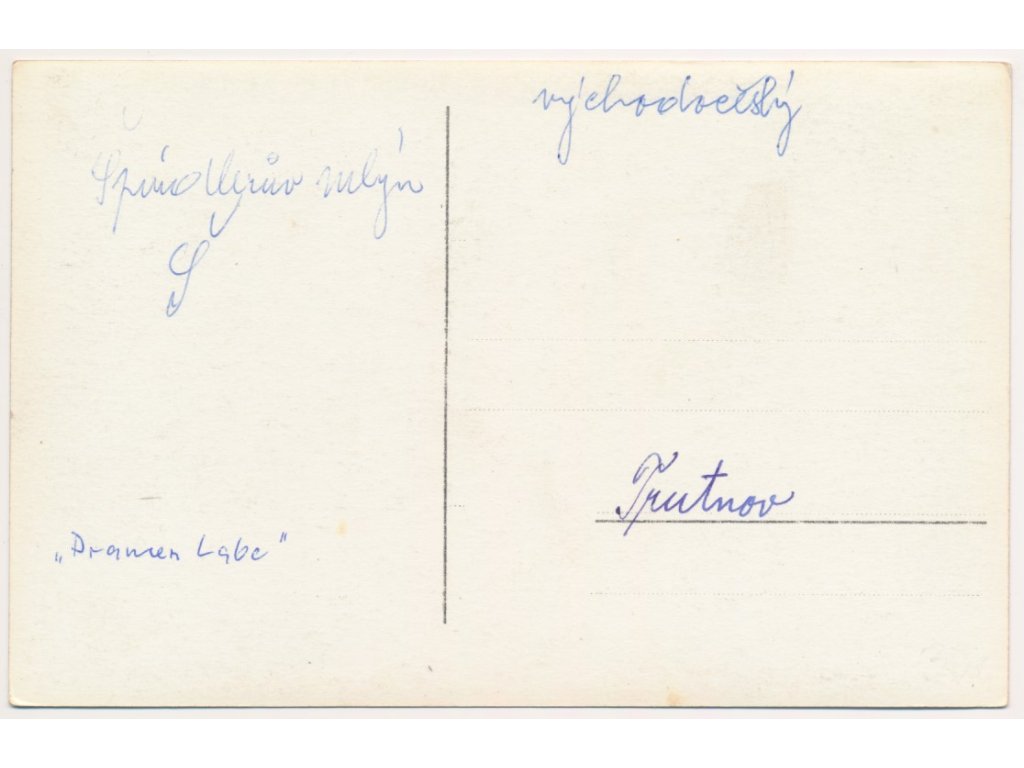 Špindlerův mlýn
S
„Pramen Labe"
východočeský
Trutnov